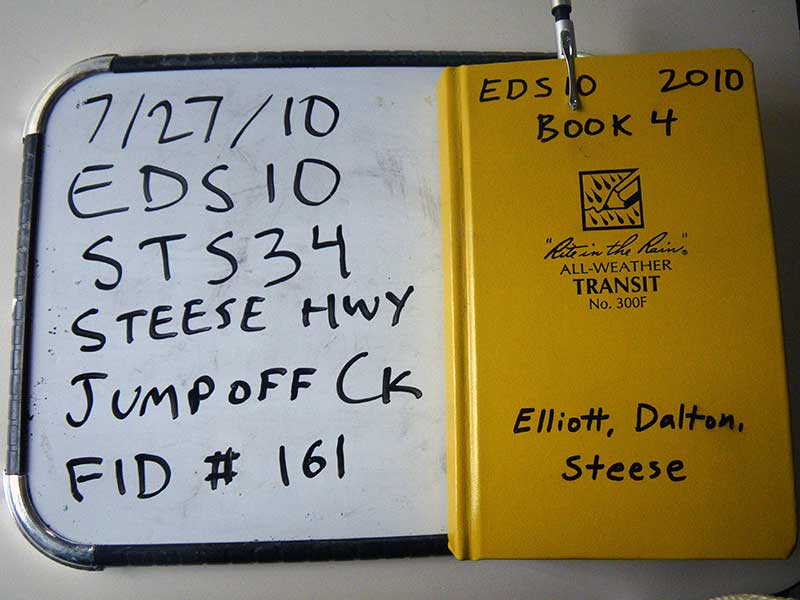 7/27/10
EDS10
STS34
STEESE HWY
JUMPOFF CK
FID # 161
EDS10 2010
BOOK 4
"Rite in the Rain"®
ALL-WEATHER
TRANSIT
No. 300F
Elliott, Dalton,
Steese